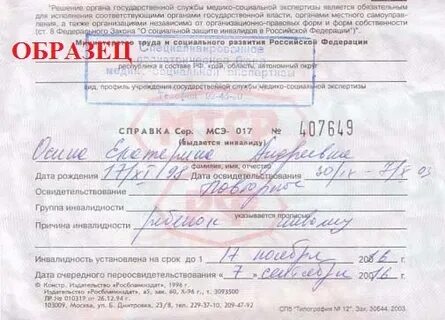 "Решение органа государственной службы медико-социальной экспертизы является обязательным
для исполнения соответствующими органами государственной власти, органами местного самоуправ-
ления, а также организациями независимо от организационно-правовых форм и форм собственности
(ст. 8 Федерального Закона "О социальной защите инвалидов в Российской Федерации").
ОБРАЗЕЦ
труда и социального развития Российской Федерации
Специализированное
республика в составе РФ, край, область, автономный округ
медико-социальной экспертизы
вид, профиль учреждения государственной службы медико-социальной экспертизы
Телефон
СПРАВКА Сер. МСЭ- 017 № 407649
(выдается инвалиду)
Осина Екатерина Андреевна
фамилия, имя, отчество
Дата рождения 17/XI/98 Дата освидетельствования
Освидетельствование Повторное
Группа инвалидности
указывается прописью
Причина инвалидности ребенок инвалид
Инвалидность установлена на срок до 1 17 ноября
Дата очередного переосвидетельствования « 7 » сентября
© Констр. Издательство «Росбланкиздат», 1996 г.
Издательство «Росбланкиздат», з. 3093500
ЛР № 010319 от 26.12.94 г.
103009, Москва, ул. Б. Дмитровка, 23/8, тел. 229-17-10, 209-47-92
СПБ "Типография № 12", Зак. 50644, 2003.